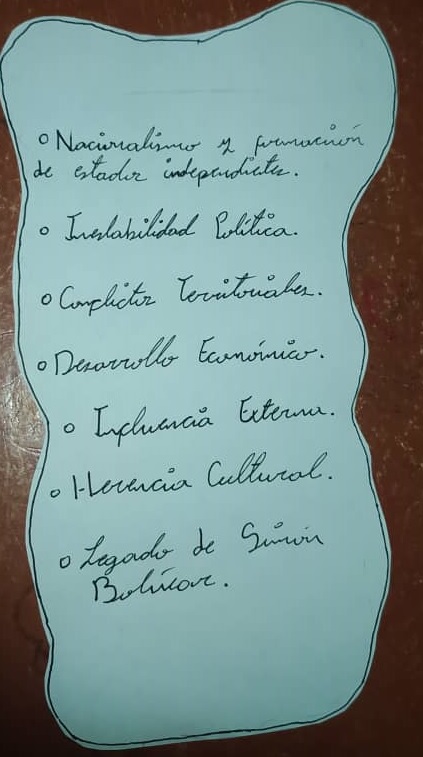 o Nacionalismo y formación
de estados independientes.
o Inestabilidad Política.
o Conflictos Territoriales.
o Desarrollo Económico.
o Influencia Externa.
o Herencia Cultural.
o Legado de Simón
Bolívar.